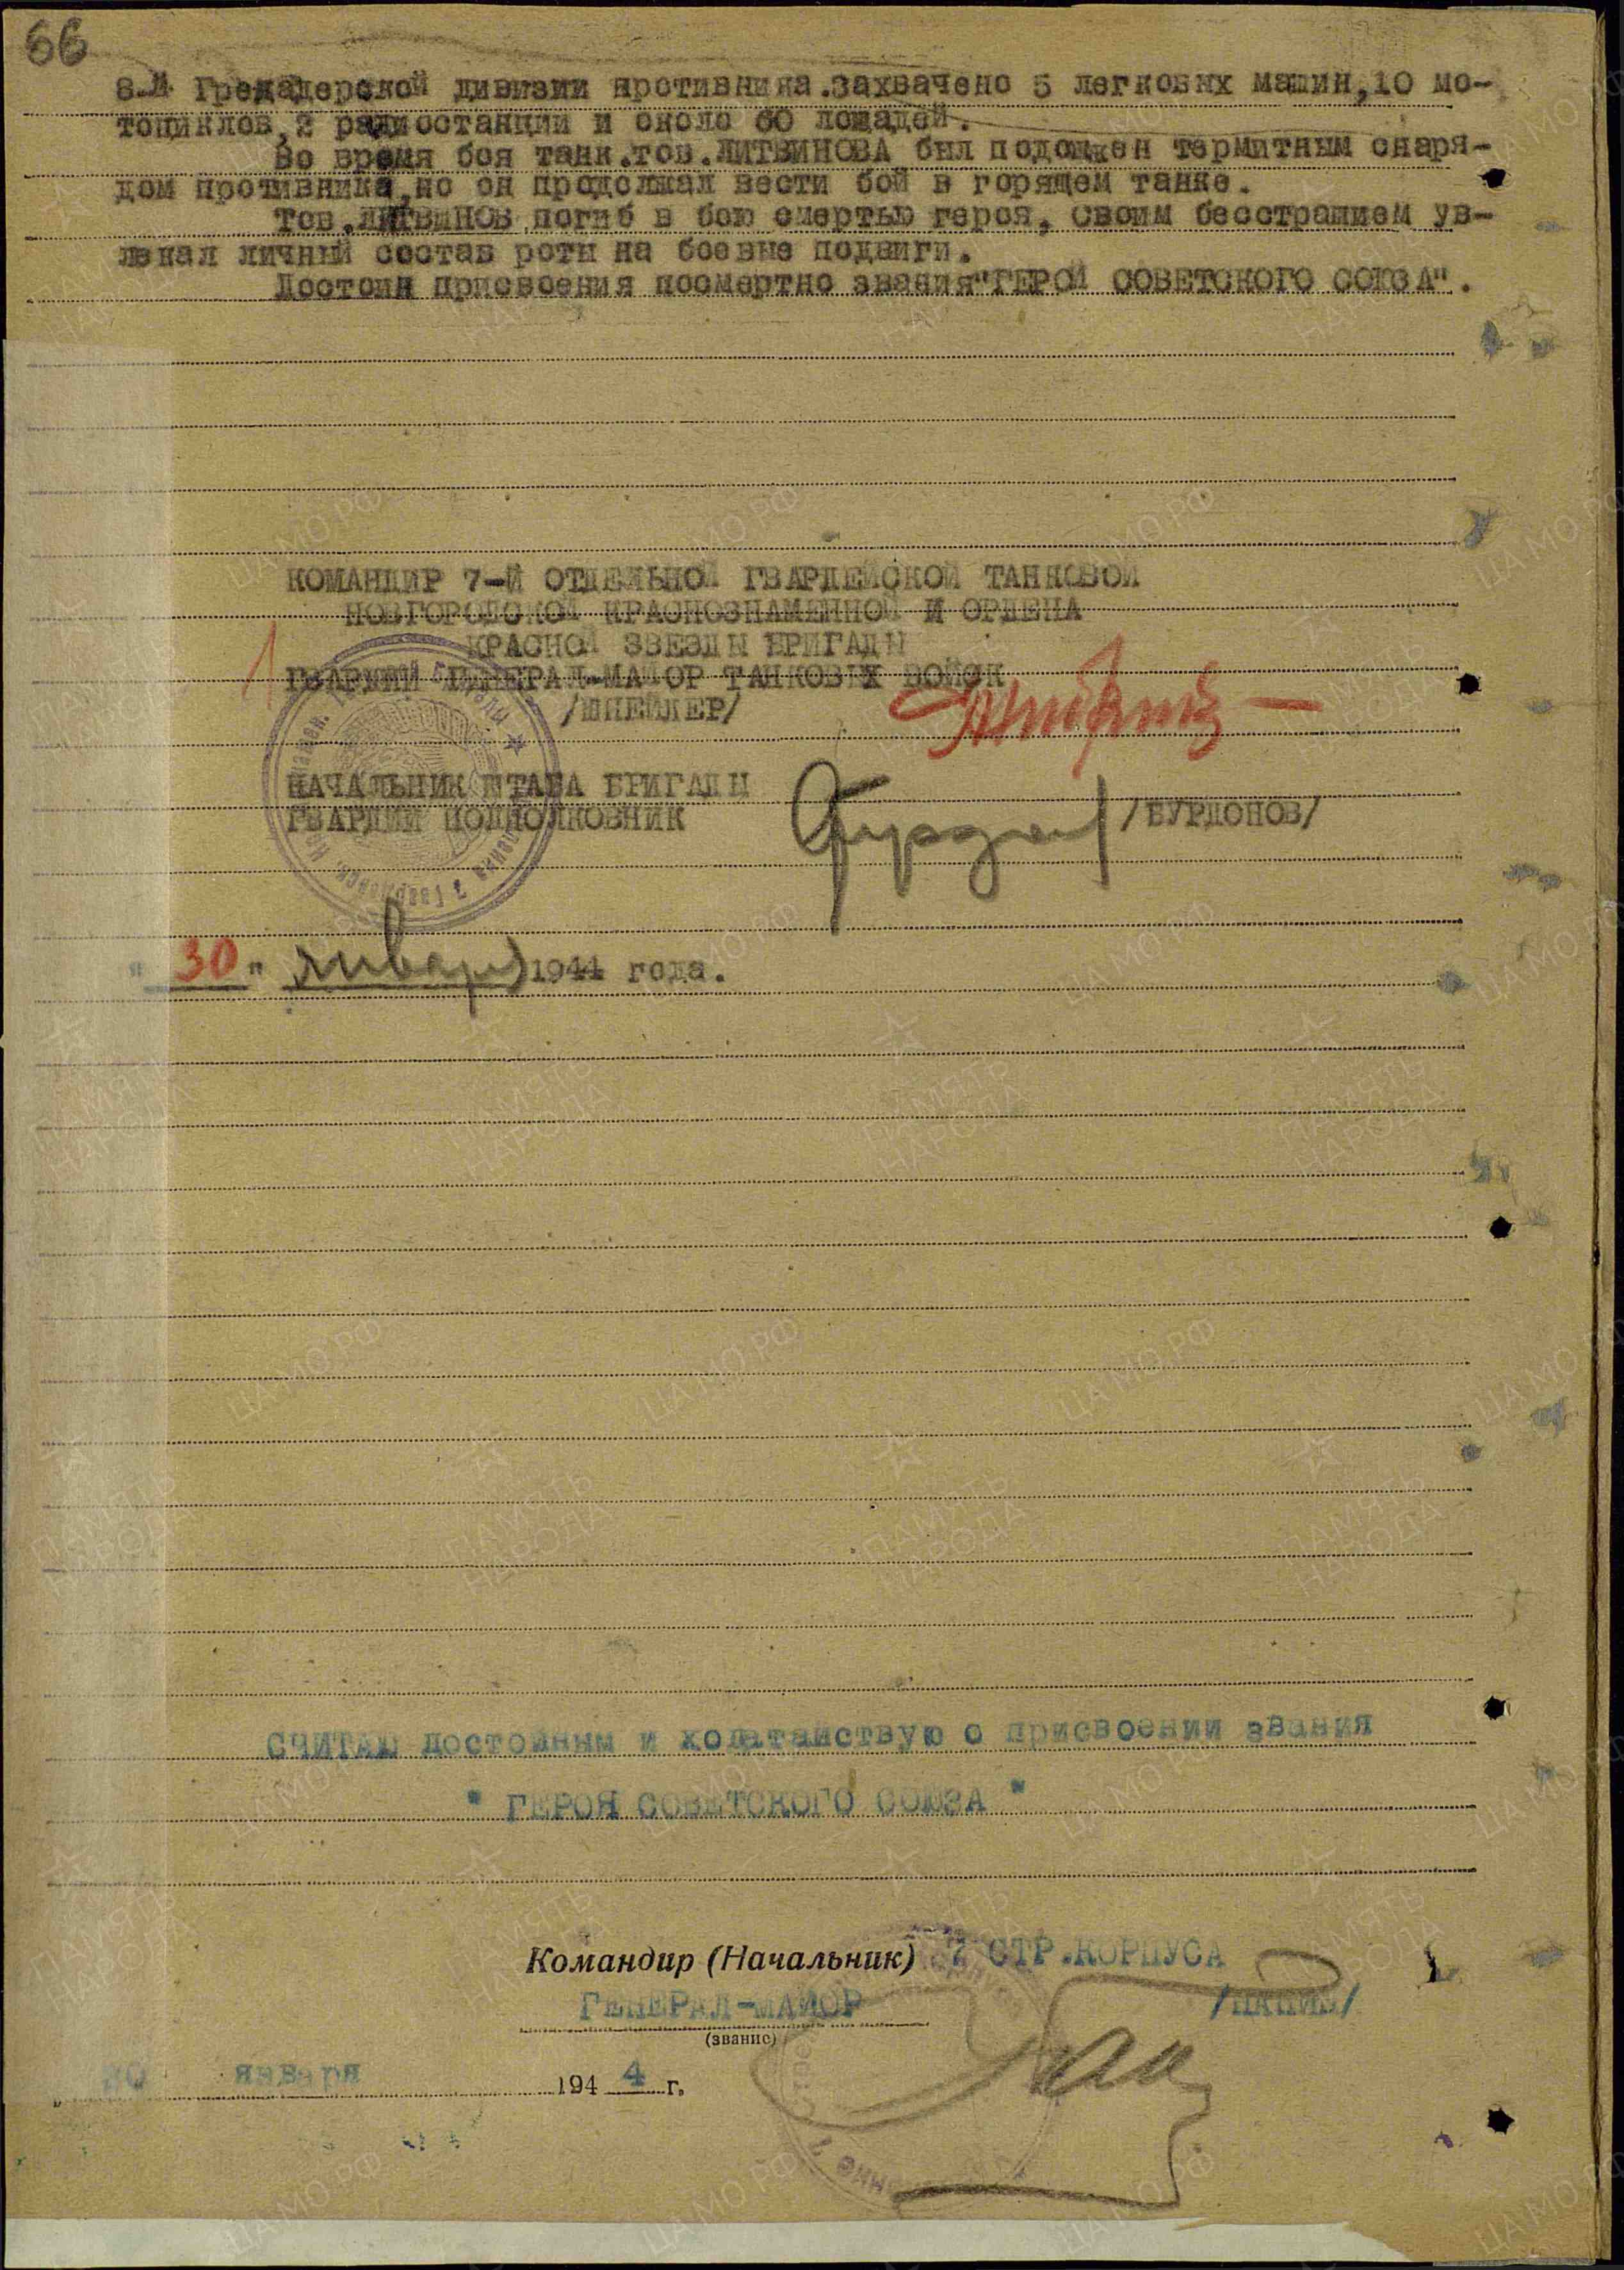 66
8-й Гренадерской дивизии противника.захвачено 5 легковых машин,10 мо-
тоциклов,2 радиостанции и около 60 лошадей.
Во время боя танк.тов.ЛИТВИНОВА был подожжен термитным снаря-
дом противника,но он продолжал вести бой в горящем танке.
Тов.ЛИТВИНОВ погиб в бою смертью героя, своим бесстрашием ув-
лекал личный состав роты на боевые подвиги.
Достоин присвоения посмертно звания"ГЕРОЙ СОВЕТСКОГО СОЮЗА".
КОМАНДИР 7-Й ОТДЕЛЬНОЙ ГВАРДЕЙСКОЙ ТАНКОВОЙ
НОВГОРОДСКОЙ КРАСНОЗНАМЕННОЙ И ОРДЕНА
КРАСНОЙ ЗВЕЗДЫ БРИГАДЫ
ГВАРДИИ ГЕНЕРАЛ-МАЙОР ТАНКОВЫХ ВОЙСК
/ШНЕЙДЕР/
НАЧАЛЬНИК ШТАБА БРИГАДЫ
ГВАРДИИ ПОДПОЛКОВНИК /БУРДОНОВ/
"30" января 1944 года.
СЧИТАЮ достойным и ходатайствую о присвоении звания
" ГЕРОЯ СОВЕТСКОГО СОЮЗА "
Командир (Начальник) 7 СТР.КОРПУСА
ГЕНЕРАЛ-МАЙОР
(звание)
января 1944 г.
ЦАМО РФ
ПАМЯТЬ НАРОДА